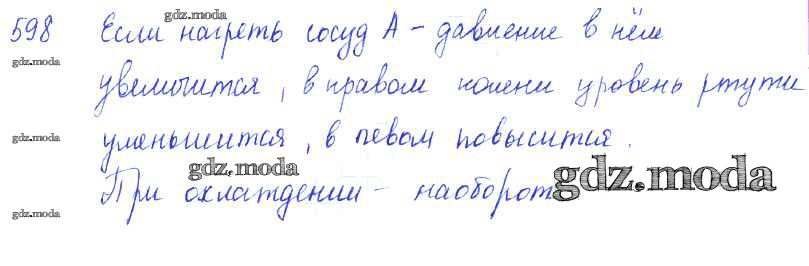 gdz.moda
598 Если нагреть сосуд А - давление в нём
gdz.moda
увеличится, в правом колени уровень ртути
gdz.moda
уменьшится, в левом повысится.
gdz.moda
При охлаждении - наоборот
gdz.moda
gdz.moda